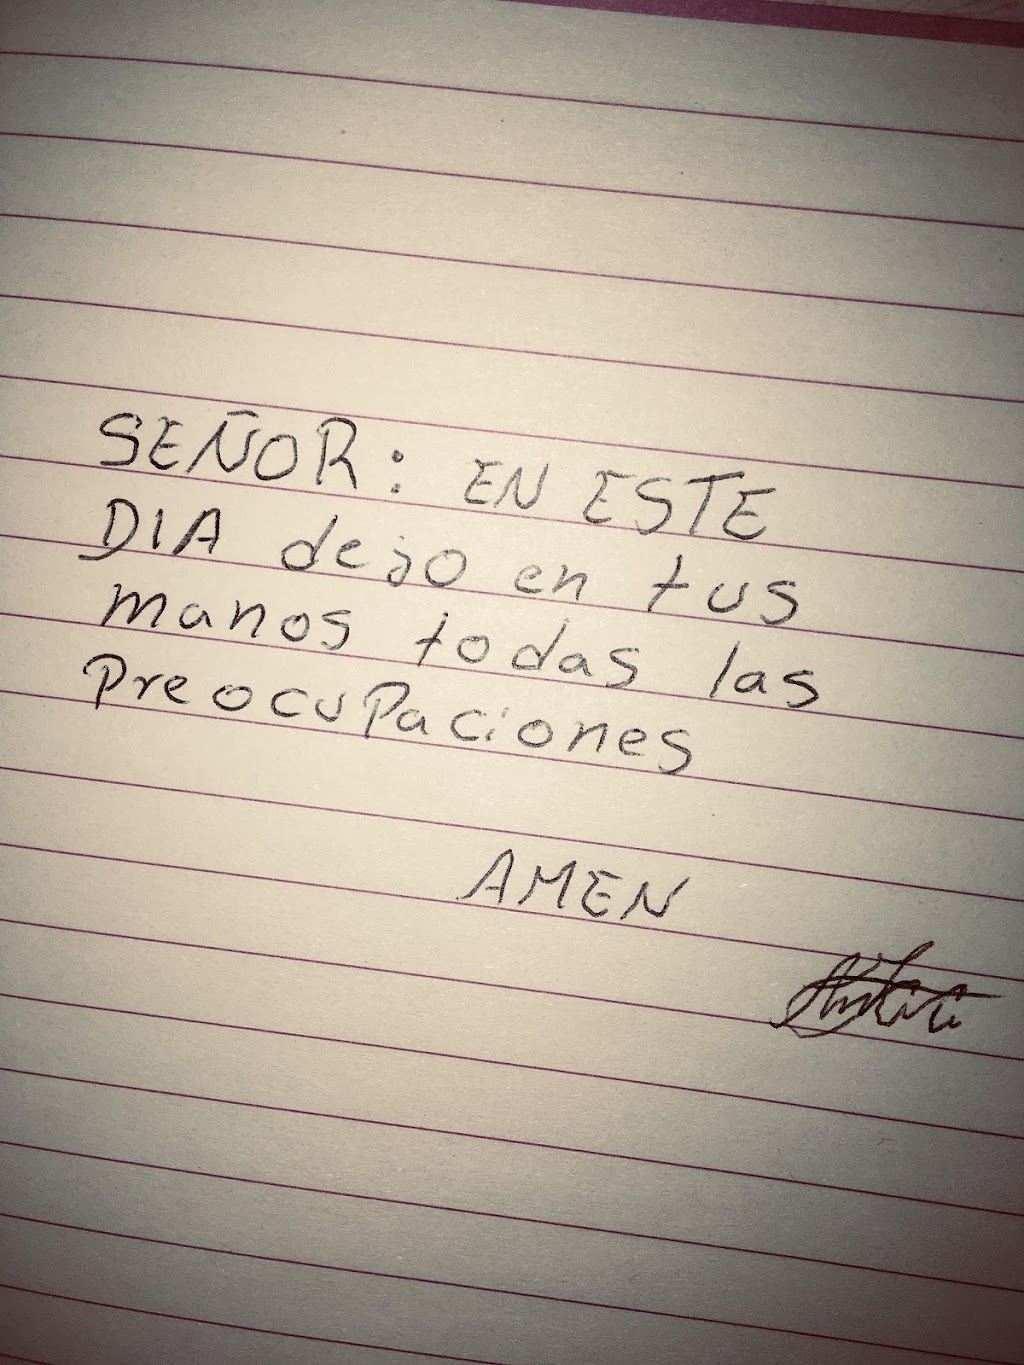 SEÑOR: EN ESTE
DIA dejo en tus
manos todas las
PreocuPaciones
AMEN